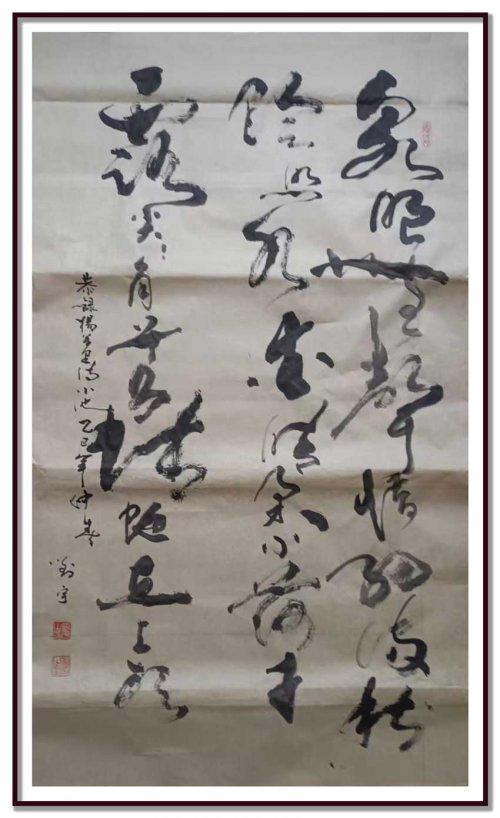 泉眼無聲惜細流樹
陰照水愛晴柔小荷才
露尖々角早有蜻蜓立上頭
恭録楊萬里诗小池乙巳年仲
劉宇